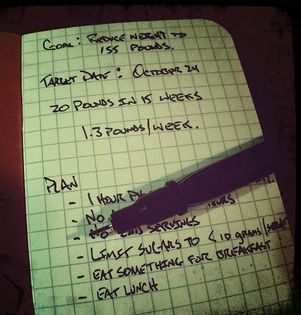 GOAL: REDUCE WEIGHT TO
155 POUNDS.
TARGET DATE: OCTOBER 24
20 POUNDS IN 15 WEEKS
1.3 POUNDS/WEEK.
PLAN
- 1 HOUR
- NO
- NO SERVINGS
- LIMIT SUGARS TO < 10 GRAMS/
- EAT SOMETHING FOR BREAKFAST
- EAT LUNCH